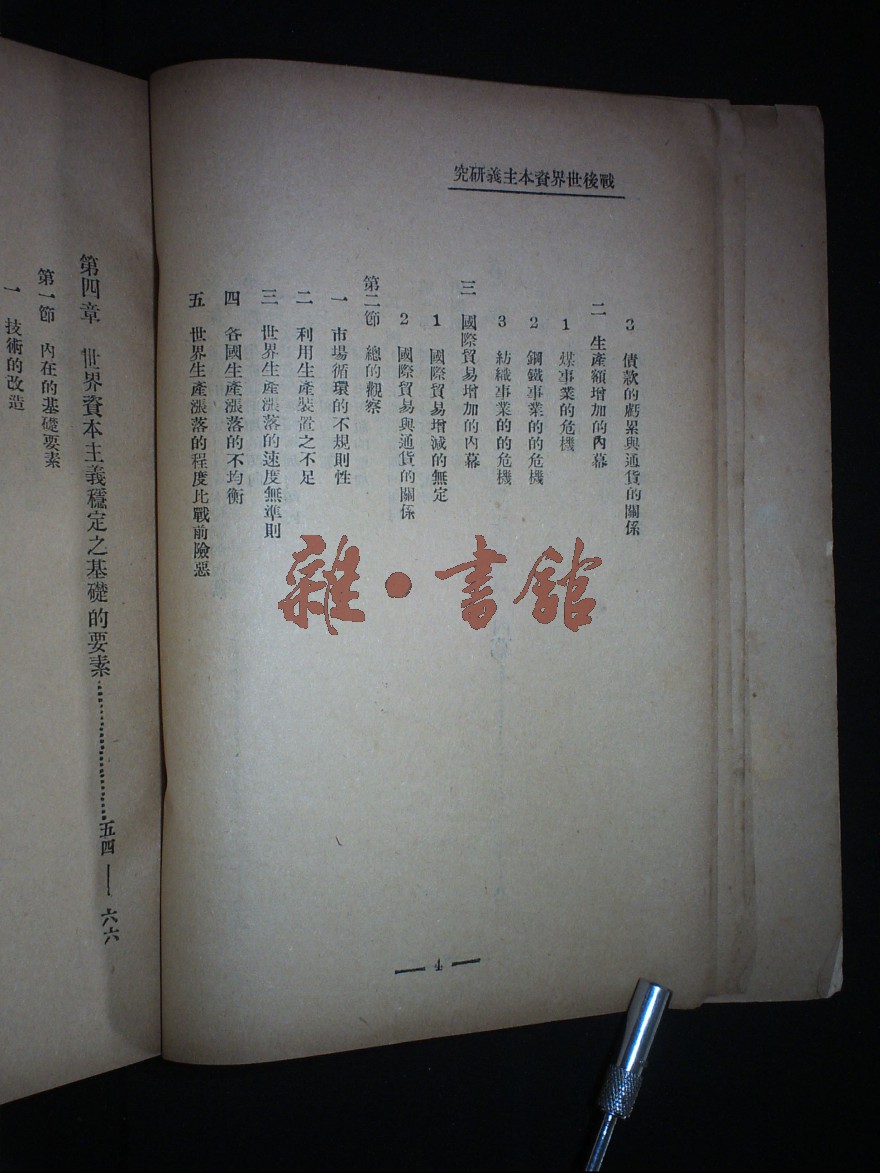 戰後世界資本主義研究
3 債款的虧累與通貨的關係
二 生產額增加的內幕
1 煤事業的危機
2 鋼鐵事業的的危機
3 紡織事業的的危機
三 國際貿易增加的內幕
1 國際貿易增減的無定
2 國際貿易與通貨的關係
第二節 總的觀察
一 市場循環的不規則性
二 利用生產裝置之不足
三 世界生產漲落的速度無準則
四 各國生產漲落的不均衡
五 世界生產漲落的程度比戰前險惡
— 4 —
第四章 世界資本主義穩定之基礎的要素……五四——六六
第一節 內在的基礎要素
一 技術的改造
雜·書館